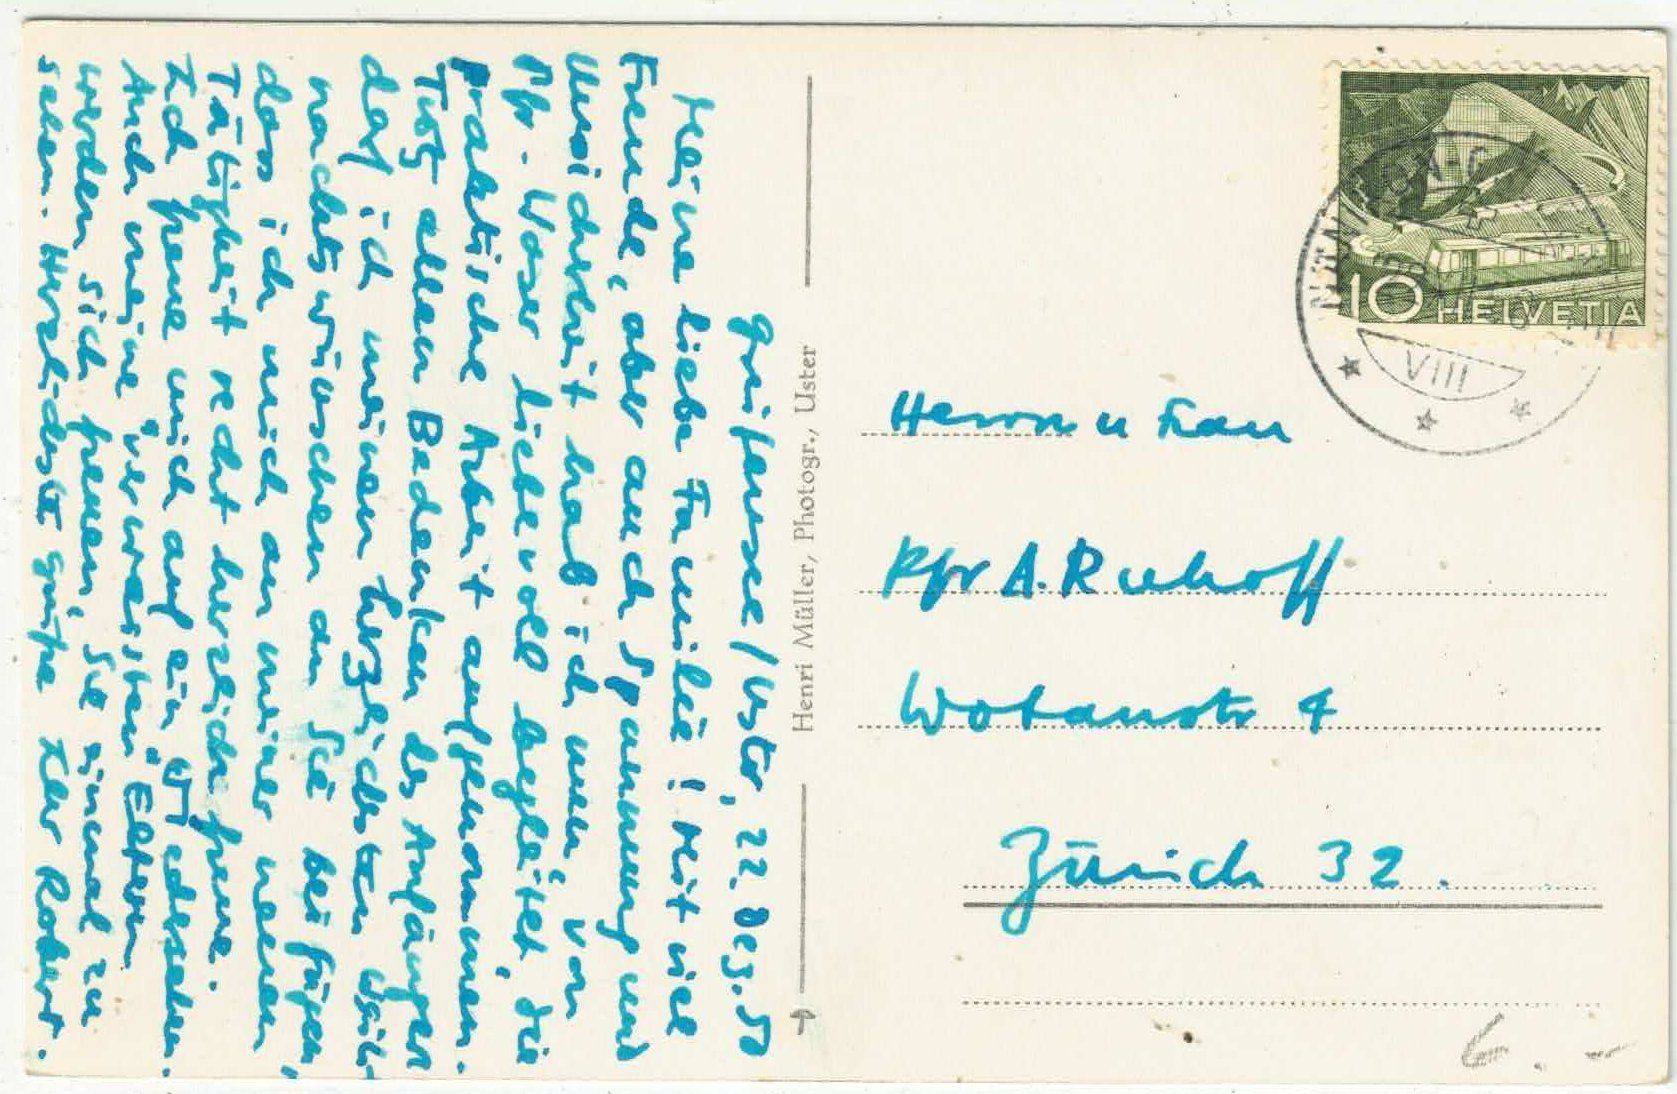 Greifensee/Uster, 22. Dez. 50
Meine liebe Familie! Mit viel
Freude, aber auch Spannung und
Unsicherheit hab ich nun, von
Pfr. Woser liebevoll begleitet, die
praktische Arbeit aufgenommen.
Trotz allen Bedenken des Anfängers
darf ich meinen herzlichsten Weih-
nachtswünschen an Sie beifügen,
dass ich mich an meiner neuen
Tätigkeit recht herzlich freue.
Ich freue mich auf ein Wiedersehen.
Auch meine "verwaisten" Eltern
würden sich freuen, Sie einmal zu
sehen. Herzlichste Grüsse Ihr Robert.
Henri Müller, Photogr., Uster
10 HELVETIA
VIII
Herrn u Frau
Pfr A. Ruhoff
Wotanstr 4
Zürich 32.
6.-